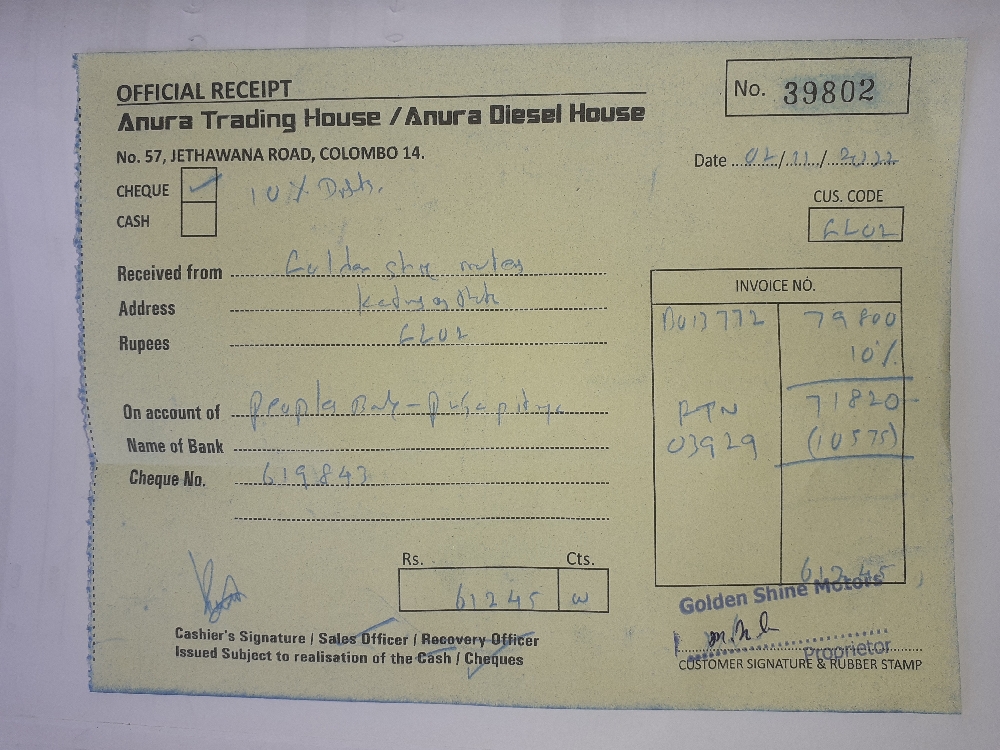 OFFICIAL RECEIPT
No. 39802
Anura Trading House / Anura Diesel House
No. 57, JETHAWANA ROAD, COLOMBO 14.
Date 02/11/2022
CHEQUE ✓ 10%
CASH
CUS. CODE
GL02
Received from Golden
Address
Rupees GL02
INVOICE NO.
13772 79800
10%
On account of Peoples Bank -
71820
RTN
03929 (10575)
Name of Bank
Cheque No. 619843
Rs. Cts.
61245
61245
Golden Shine Motors
Proprietor
Cashier's Signature / Sales Officer / Recovery Officer
Issued Subject to realisation of the Cash / Cheques
CUSTOMER SIGNATURE & RUBBER STAMP